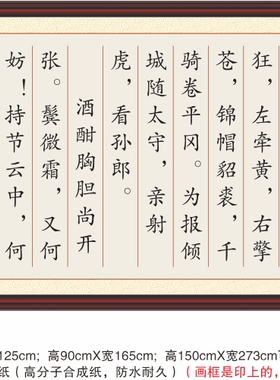 狂，左牵黄，右擎
苍，锦帽貂裘，千
骑卷平冈。为报倾
城随太守，亲射
虎，看孙郎。
酒酣胸胆尚开
张。鬓微霜，又何
妨！持节云中，何
125cm; 高90cmX宽165cm; 高150cmX宽273cm
纸（高分子合成纸，防水耐久）（画框是印上的，